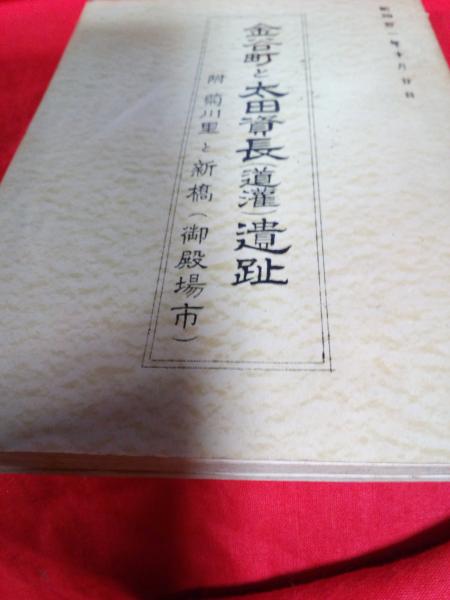 昭和卅一年十月廿日
金谷町と太田資長(道灌)遺趾
附 菊川里と新橋(御殿場市)